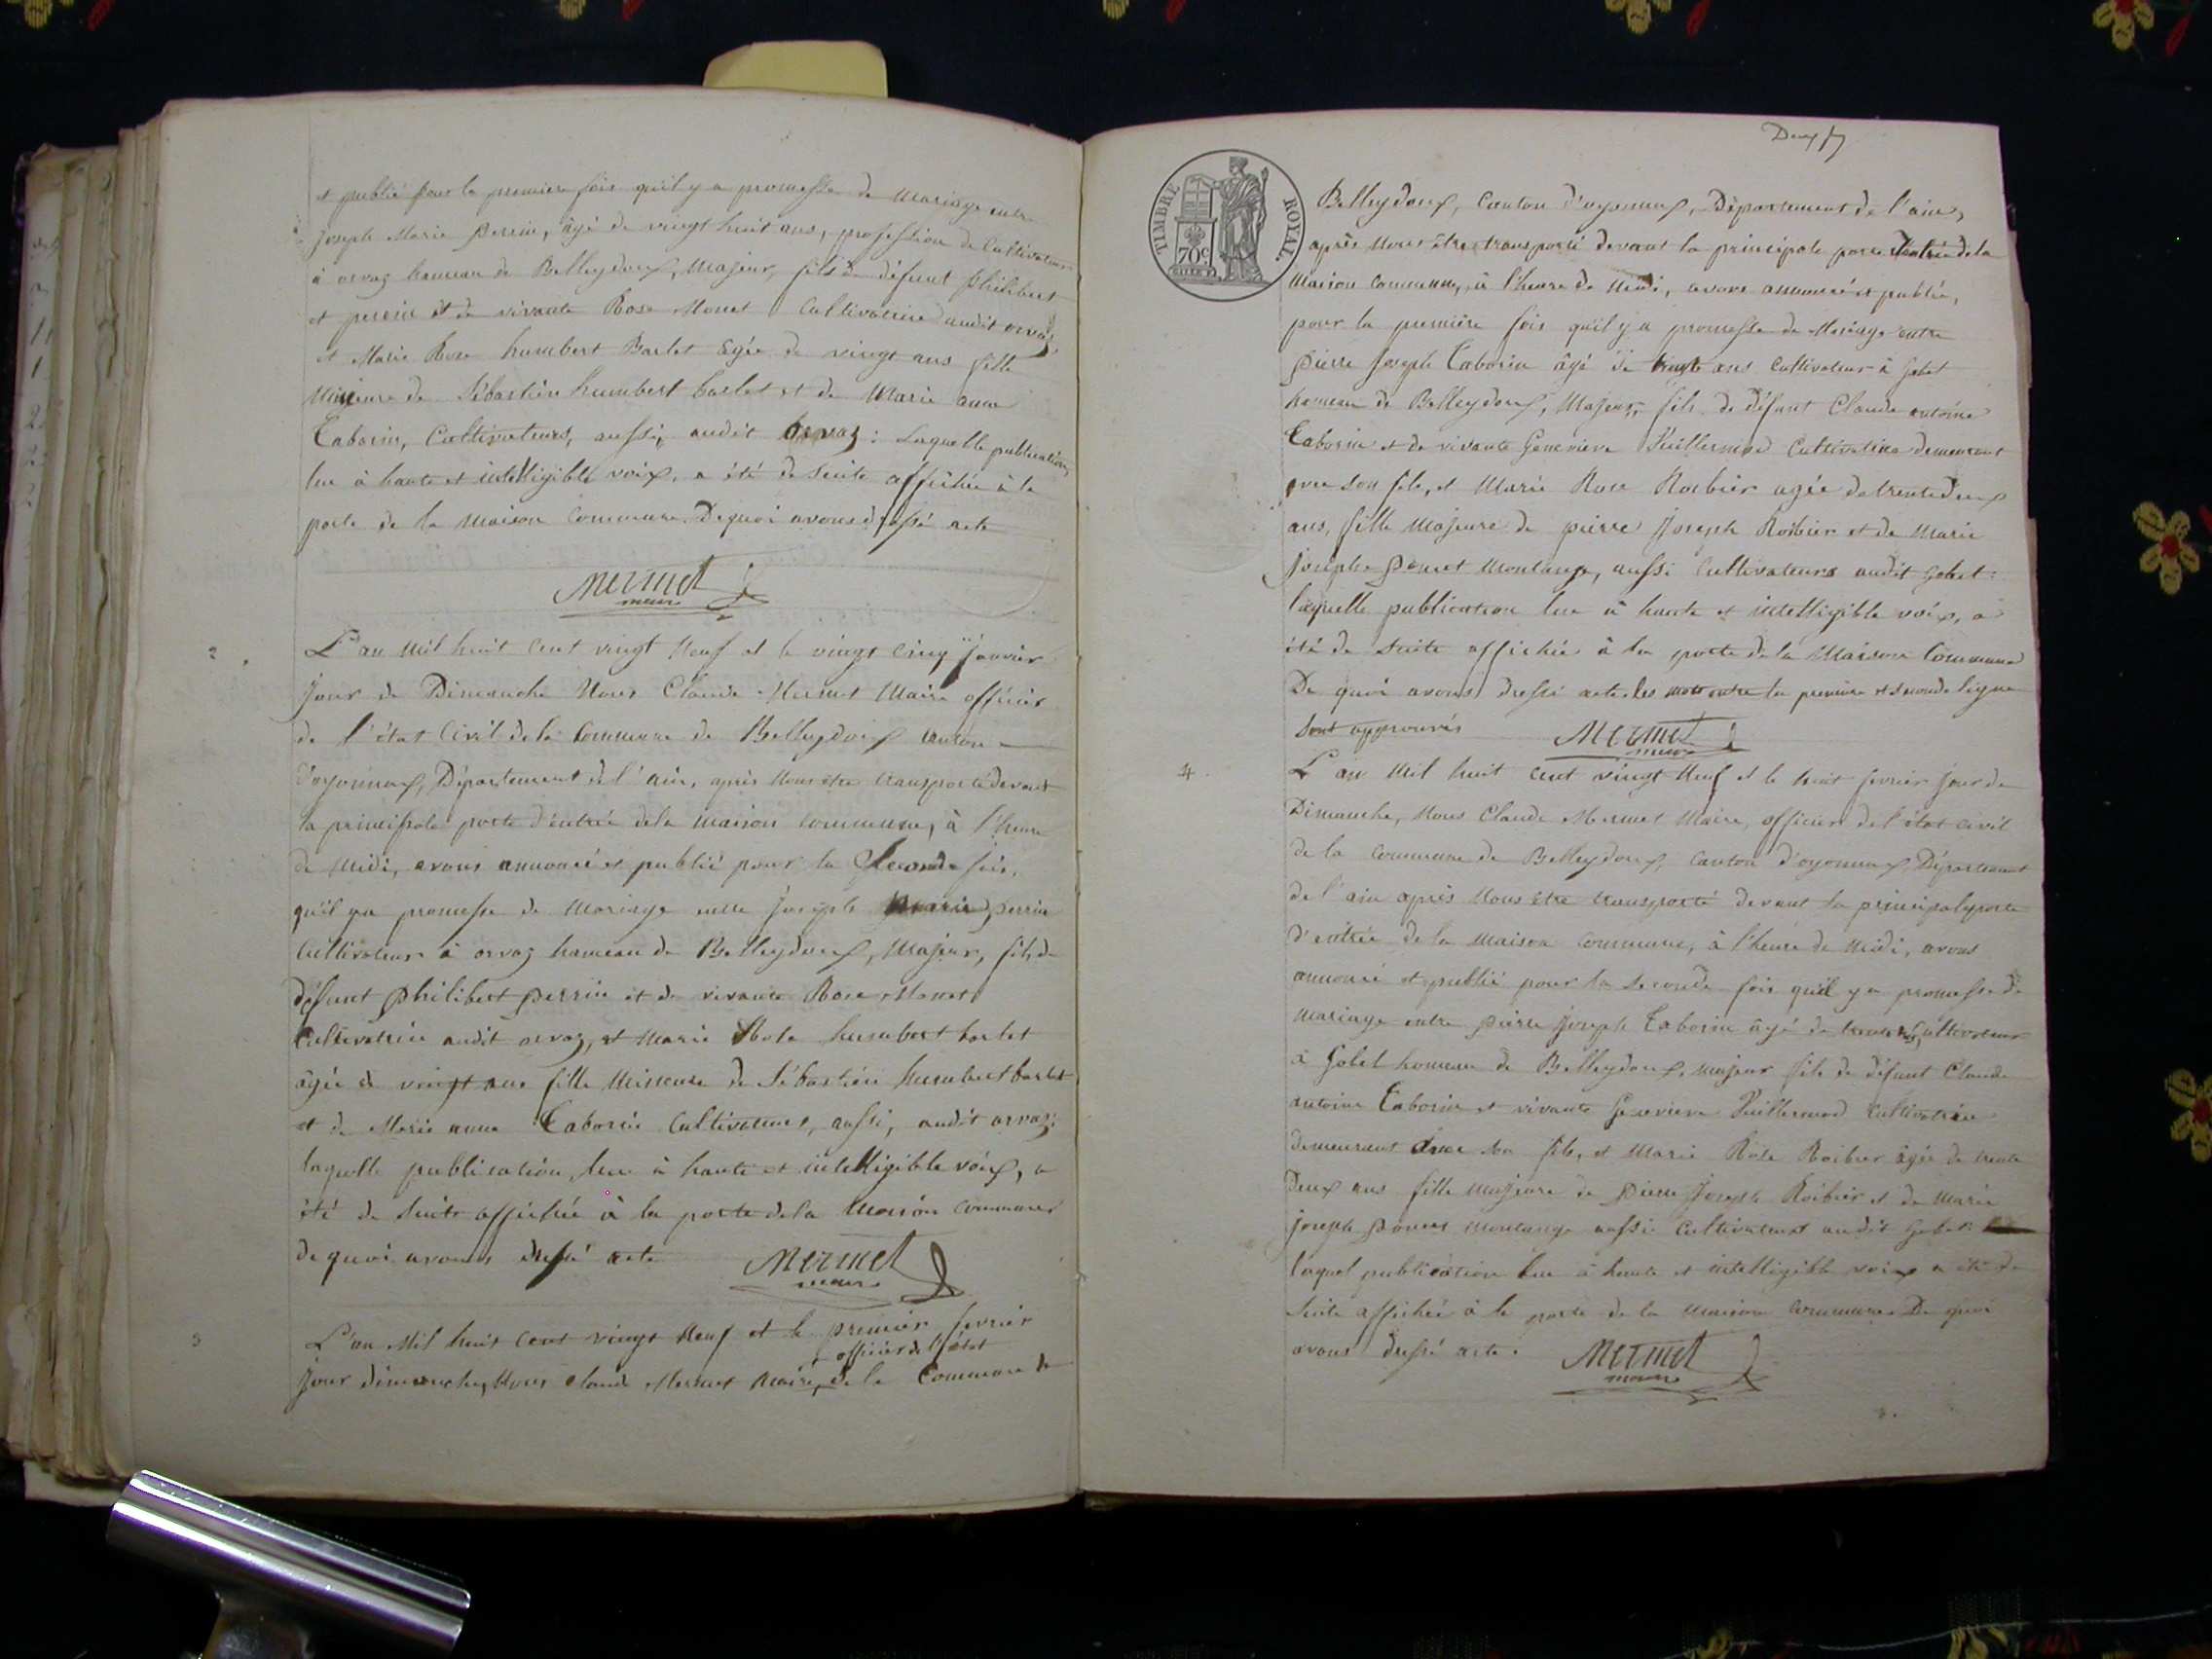 et publié pour la premiere fois qu'il y a promesse de mariage entre
joseph Marie perrin, âgé de vingt huit ans, profession de Cultivateur
à orvaz hameau de Belleydoux, Majeur, fils de défunt philibert
et perrin et de vivante Rose Monet Cultivatrice audit orvaz
et Marie Rose humbert Barlet âgée de vingt ans fille
Mineure de Sébastien humbert barlet et de Marie anne
Taborin, Cultivateurs, aussi, audit orvaz : Laquelle publication,
lue à haute et intelligible voix, a été de suite affichée à la
porte de la maison Commune. De quoi avons dressé acte
Mermet
maire
2.
L'an Mil huit Cent vingt Neuf et le vingt Cinq janvier
jour de Dimanche Nous Claude Mermet Maire officier
de l'état Civil de la Commune de Belleydoux Canton
d'oyonnax, Département de l'ain, après Nous être transporté devant
la principale porte d'entrée de la maison commune, à l'heure
de midi, avons annoncé et publié pour la Seconde fois,
qu'il y a promesse de Mariage entre Joseph Marie perrin
Cultivateur à orvaz hameau de Belleydoux, Majeur, fils de
défunt philibert perrin et de vivante Rose Monet
Cultivatrice audit orvaz, et Marie Rose humbert barlet
âgée de vingt ans fille Mineure de Sébastien humbert barlet
et de Marie anne Taborin Cultivateurs, aussi, audit orvaz;
laquelle publication, lue à haute et intelligible voix, a
été de suite affichée à la porte de la Maison Commune
de quoi avons dressé acte
Mermet
maire
3
L'an Mil huit Cent vingt Neuf et le premier fevrier
officier de l'état
Jour dimanche, Nous Claude Mermet Maire, de la Commune de
Deux
TIMBRE ROYAL
70c
Belleydoux, Canton d'oyonnax, Département de l'ain,
après Nous être transporté devant la principale porte d'entrée de la
Maison Commune, à l'heure de Midi, avons annoncé et publié,
pour la première fois qu'il y a promesse de Mariage entre
pierre Joseph Taborin âgé de trente ans Cultivateur à Gobet
hameau de Belleydoux, Majeur, fils de défunt Claude antoine
Taborin et de vivante Genevieve Vuillermod Cultivatrice demeurant
avec son fils, et Marie Rose Roibier agée de trente deux
ans, fille Majeure de pierre Joseph Roibier et de Marie
josephe poncet Montange, aussi Cultivateurs audit Gobet :
laquelle publication lue à haute et intelligible voix, a
été de Suite affichée à la porte de la Maison Commune
De quoi avons dressé acte. les mots entre la premiere et seconde ligne
Sont approuvés
Mermet
maire
4.
L'an Mil huit Cent vingt Neuf et le huit fevrier jour de
Dimanche, Nous Claude Mermet Maire, officier de l'état civil
de la Commune de Belleydoux, Canton d'oyonnax Département
de l'ain après Nous être transporté devant la principale porte
d'entrée de la Maison Commune, à l'heure de Midi, avons
annoncé et publié pour la seconde fois qu'il y a promesse de
Mariage entre pierre Joseph Taborin âgé de trente ans, Cultivateur
à Gobet hameau de Belleydoux, majeur fils de défunt Claude
antoine Taborin et vivante Genevieve Vuillermod cultivatrice
demeurant avec son fils, et Marie Rose Roibier âgée de trente
Deux ans fille Majeure de pierre Joseph Roibier et de Marie
joseph poncet Montange aussi Cultivateurs audit Gobet :
laquel publication lue à haute et intelligible voix a été de
suite affichée à la porte de la Maison Commune. De quoi
avons dressé acte.
Mermet
maire